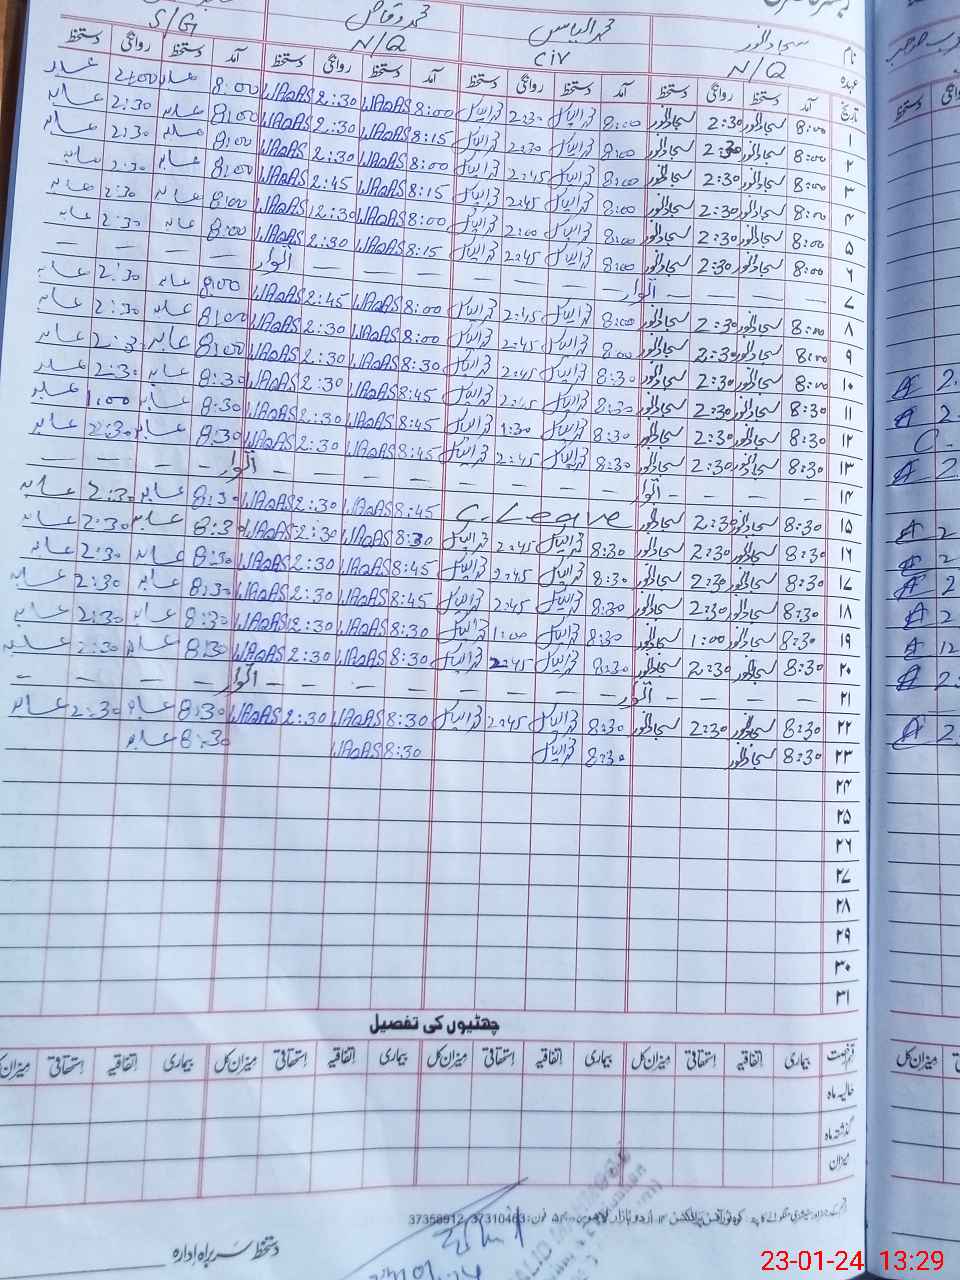 نام سجاد انور محمد الیاس محمد وقاص
عہدہ N/Q Civ N/Q S/G
تاریخ آمد دستخط روانگی دستخط آمد دستخط روانگی دستخط آمد دستخط روانگی دستخط آمد دستخط روانگی دستخط
۱ 8:00 سجاد انور 2:30 سجاد انور 8:00 محمد الیاس 2:30 محمد الیاس 8:00 WAQAS 2:30 WAQAS 8:00 عابد 2:00 عابد
۲ 8:00 سجاد انور 2:30 سجاد انور 8:00 محمد الیاس 2:30 محمد الیاس 8:15 WAQAS 2:30 WAQAS 8:00 عابد 2:30 عابد
۳ 8:00 سجاد انور 2:30 سجاد انور 8:00 محمد الیاس 2:45 محمد الیاس 8:00 WAQAS 2:30 WAQAS 8:00 عابد 2:30 عابد
۴ 8:00 سجاد انور 2:30 سجاد انور 8:00 محمد الیاس 2:45 محمد الیاس 8:15 WAQAS 2:45 WAQAS 8:00 عابد 2:30 عابد
۵ 8:00 سجاد انور 2:30 سجاد انور 8:00 محمد الیاس 2:00 محمد الیاس 8:00 WAQAS 12:30 WAQAS 8:00 عابد 2:30 عابد
۶ 8:00 سجاد انور 2:30 سجاد انور 8:00 محمد الیاس 2:45 محمد الیاس 8:15 WAQAS 2:30 WAQAS 8:00 عابد 2:30 عابد
۷ — — — — اتوار — — — — — — اتوار — — — —
۸ 8:00 سجاد انور 2:30 سجاد انور 8:00 محمد الیاس 2:45 محمد الیاس 8:00 WAQAS 2:45 WAQAS 8:00 عابد 2:30 عابد
۹ 8:00 سجاد انور 2:30 سجاد انور 8:00 محمد الیاس 2:45 محمد الیاس 8:00 WAQAS 2:30 WAQAS 8:00 عابد 2:30 عابد
۱۰ 8:00 سجاد انور 2:30 سجاد انور 8:30 محمد الیاس 2:45 محمد الیاس 8:30 WAQAS 2:30 WAQAS 8:00 عابد 2:30 عابد
۱۱ 8:30 سجاد انور 2:30 سجاد انور 8:30 محمد الیاس 2:45 محمد الیاس 8:45 WAQAS 2:30 WAQAS 8:30 عابد 2:30 عابد
۱۲ 8:30 سجاد انور 2:30 سجاد انور 8:30 محمد الیاس 1:30 محمد الیاس 8:45 WAQAS 2:30 WAQAS 8:30 عابد 1:00 عابد
۱۳ 8:30 سجاد انور 2:30 سجاد انور 8:30 محمد الیاس 2:45 محمد الیاس 8:45 WAQAS 2:30 WAQAS 8:30 عابد 2:30 عابد
۱۴ — — — — اتوار — — — — — — اتوار — — — —
۱۵ 8:30 سجاد انور 2:30 سجاد انور C. Leave 8:45 WAQAS 2:30 WAQAS 8:30 عابد 2:30 عابد
۱۶ 8:30 سجاد انور 2:30 سجاد انور 8:30 محمد الیاس 2:45 محمد الیاس 8:30 WAQAS 2:30 WAQAS 8:30 عابد 2:30 عابد
۱۷ 8:30 سجاد انور 2:30 سجاد انور 8:30 محمد الیاس 2:45 محمد الیاس 8:45 WAQAS 2:30 WAQAS 8:30 عابد 2:30 عابد
۱۸ 8:30 سجاد انور 2:30 سجاد انور 8:30 محمد الیاس 2:45 محمد الیاس 8:45 WAQAS 2:30 WAQAS 8:30 عابد 2:30 عابد
۱۹ 8:30 سجاد انور 1:00 سجاد انور 8:30 محمد الیاس 1:00 محمد الیاس 8:30 WAQAS 12:30 WAQAS 8:30 عابد 2:30 عابد
۲۰ 8:30 سجاد انور 2:30 سجاد انور 8:30 محمد الیاس 2:45 محمد الیاس 8:30 WAQAS 2:30 WAQAS 8:30 عابد 2:30 عابد
۲۱ — — — — اتوار — — — — — — اتوار — — — —
۲۲ 8:30 سجاد انور 2:30 سجاد انور 8:30 محمد الیاس 2:45 محمد الیاس 8:30 WAQAS 2:30 WAQAS 8:30 عابد 2:30 عابد
۲۳ 8:30 سجاد انور 8:30 محمد الیاس 8:30 WAQAS 8:30 عابد
۲۴
۲۵
۲۶
۲۷
۲۸
۲۹
۳۰
۳۱
چھٹیوں کی تفصیل
بیماری اتفاقیہ استحقاقی میزان کل بیماری اتفاقیہ استحقاقی میزان کل بیماری اتفاقیہ استحقاقی میزان کل بیماری اتفاقیہ استحقاقی میزان کل
حالیہ ماہ
گذشتہ ماہ
میزان
اردو بازار لاہور فون: 37310463, 37358912
دستخط سربراہ ادارہ
23-01-24 13:29